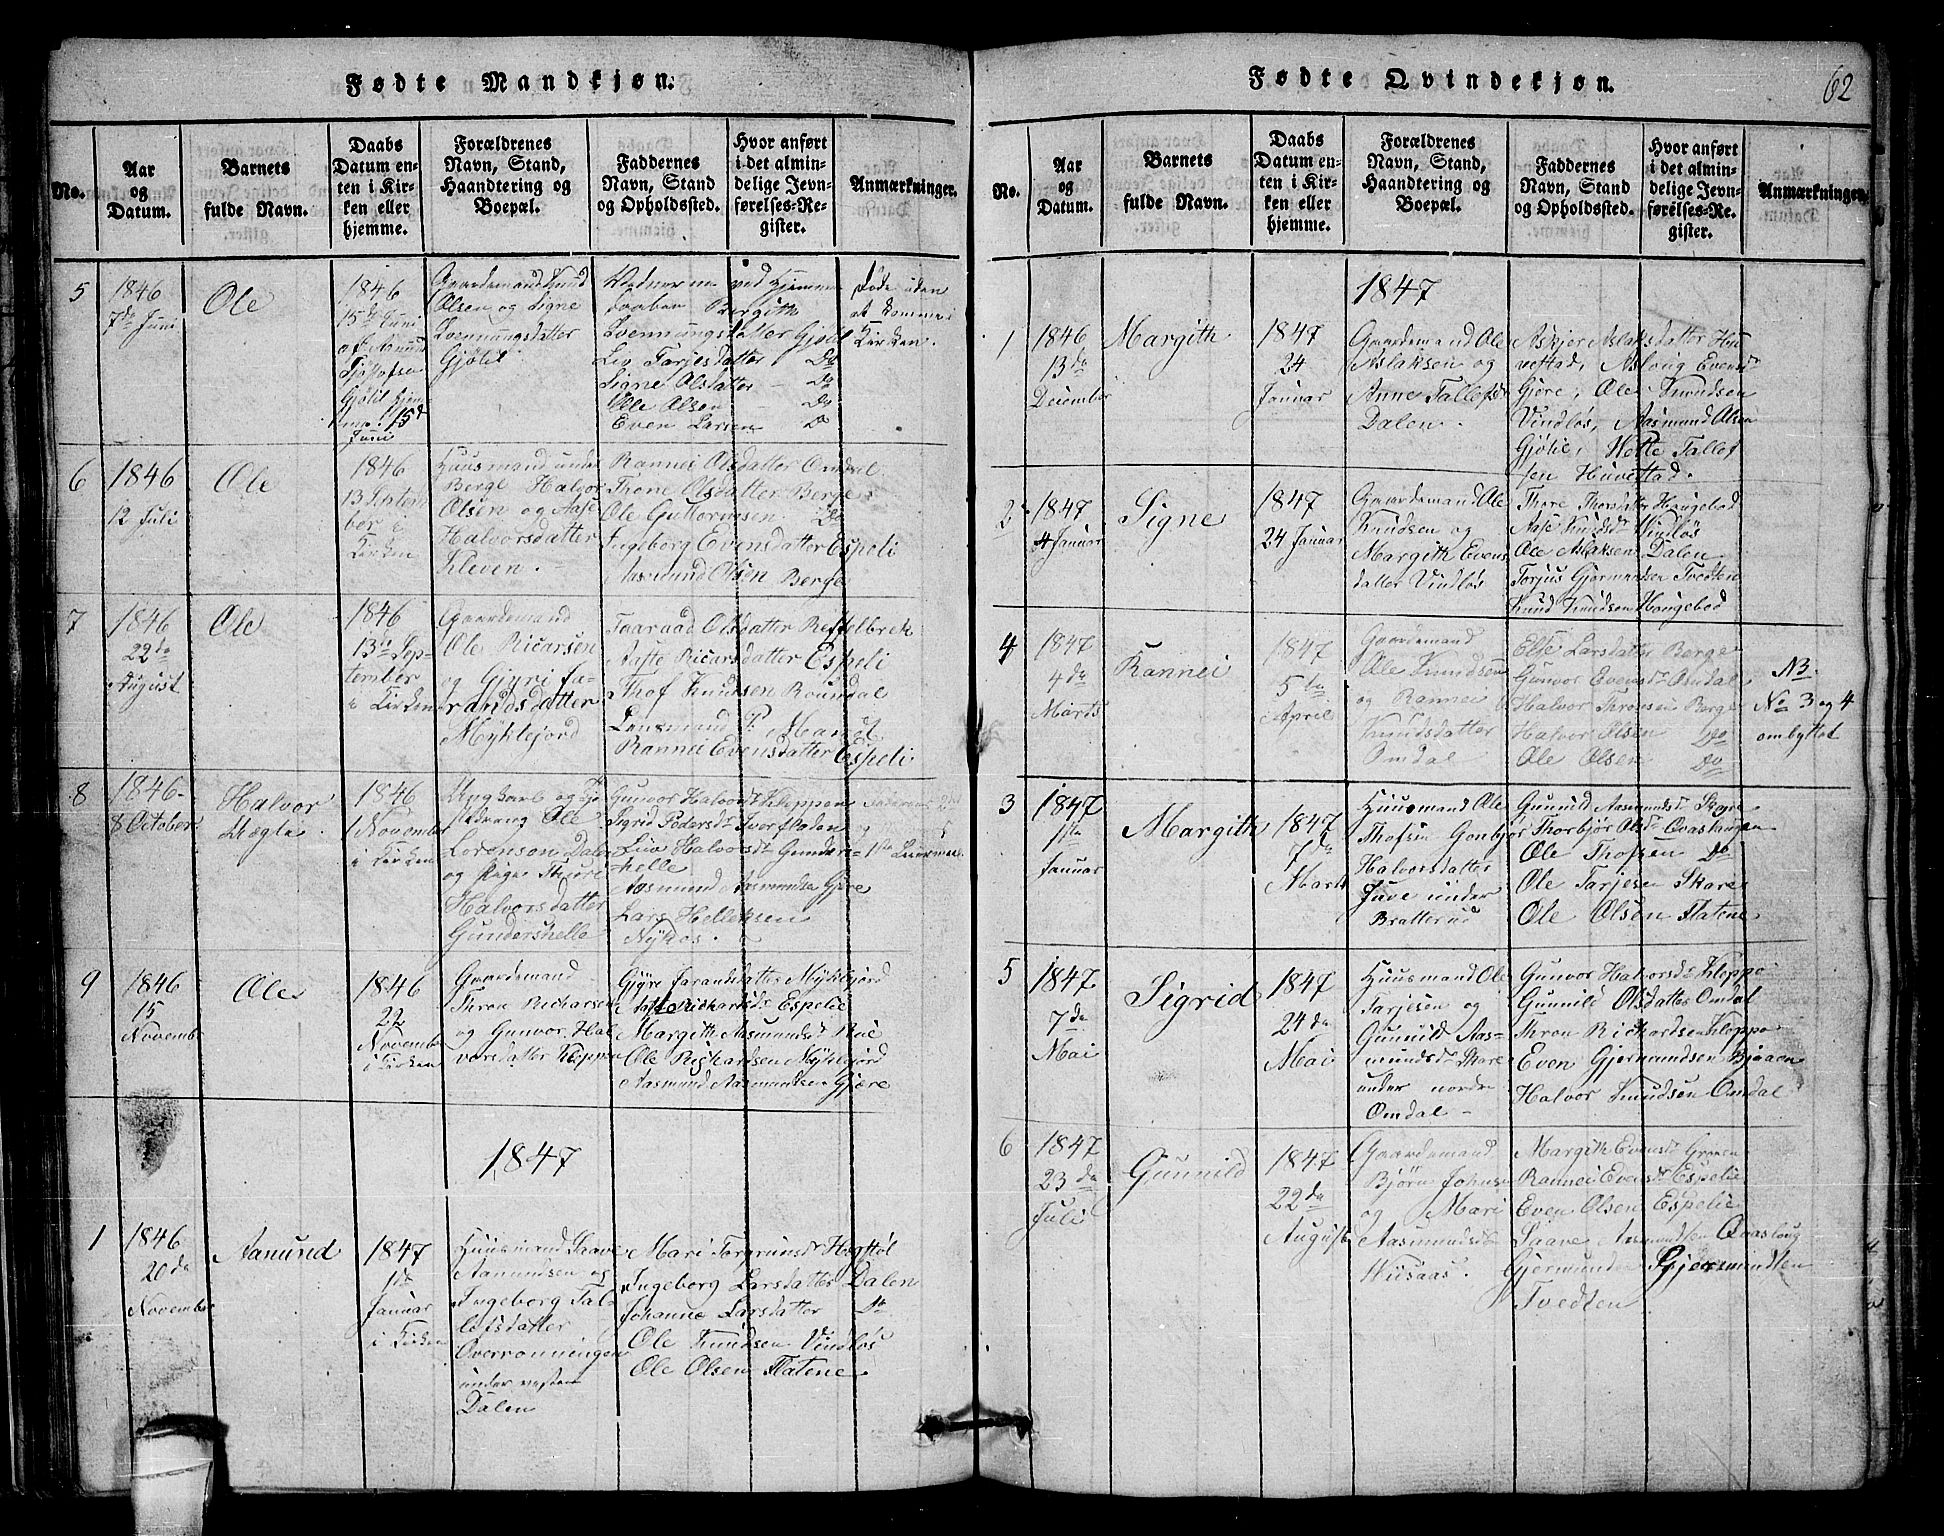 Fødte Mandkjøn.
No.
Aar
og
Datum.
Barnets
fulde Navn.
Daabs
Datum en-
ten i Kir-
ken eller
hjemme.
Forældrenes
Navn, Stand,
Haandtering og
Boepæl.
Faddernes
Navn, Stand
og Opholdssted.
Hvor anført
i det almin-
delige Jevn-
førelses-Re-
gister.
Anmærkninger.
5
1846
7de Juni
Ole
1846
15de Juni
Gjøtil
15d
Juni
Gaardemand Knud
Olsen og Signe
Svennungsdatter
Gjøtil
ved Hjemme
daaben Bergith
Svennungsdatter Gjøtil
Liv Tarjesdatter Do
Signe Olsdatter - Do
Ole Olsen - Do
Even Larsen D
Døde uden
at komme i
Kirken.
6
1846
12 Juli
Ole
1846
13 Septem-
ber i
Kirken
Huusmand under
Berge Halvor
Olsen og Aase
Halvorsdatter
Kleven.
Rannei Olsdatter Omdal
Thone Olsdatter Berge
Ole Guttormsen Do
Ingeborg Evensdatter Espeli
Aasmund Olsen Berge
7
1846
22de
August
Ole
1846
13de Sep-
tember
i Kirken
Gaardemand
Ole Ricarsen
og Gjyri Fa-
randsdatter
Myklejord
Taaraad Olsdatter Reffelbrek
Aaste Ricarsdatter Espeli
Thof Knudsen Roundal
Lensmand P. Mandt
Rannei Evensdatter Espeli
8
1846
8 October
Halvor
Uægta
1846
1 November
i Kirken
Ungkarl og
Ole
Lorenson Dale
og Pige Thore
Halvorsdatter
Gundershelle
Gunvor Halvorsdr Kleppen
Sigrid Pedersdr
Liv Halvorsdr Gunders-
helle
Aasmund Aasmundsen Gjøre
Lars Helleksen
Nykos.
Faderens 2det
og
1ste Leiermaal
9
1846
15
November
Ole
1846
22
Novemb
i Kirken
Gaardemand
Thron Richarsen
og Gunvor Hal-
vorsdatter Kleppen
Gjyre Farandsdatter Myklejord
Aaste Richardsdr Espelie
Margith Aasmundsdr Rue
Ole Richardsen Myklejord
Aasmund Aasmundsen Gjøre
1847
1
1846
20de
November
Aanund
1847
1ste
Januar
i Kirken
Huusmand Saave
Aanundsen og
Ingeborg Tal-
lefsdatter
Overronningen
under vestre
Dalen
Mari Targrimsdr Hægtføl
Ingeborg Larsdatter Dalen
Johanne Larsdatter Do
Ole Knudsen Vindløs
Ole Olsen Flatene
Fødte Qvindekjøn.
62
No.
Aar
og
Datum.
Barnets
fulde Navn.
Daabs
Datum en-
ten i Kir-
ken eller
hjemme.
Forældrenes
Navn, Stand,
Haandtering og
Boepæl.
Faddernes
Navn, Stand
og Opholdssted.
Hvor anført
i det almin-
delige Jevn-
førelses-Re-
gister.
Anmærkninger.
1847
1
1846
13de
December
Margith
1847
24
Januar
Gaardemand Ole
Aslaksen og
Anne Tallefsdr
Dalen.
Askjer Aslaksdatter Hu-
vestad, Asloug Evensdr
Gjøre, Ole Knudsen
Vindløs, Aasmund Olsen
Gjøtil, Wetle Tallef-
sen Huvestad.
2
1847
4 Januar
Signe
1847
24 Januar
Gaardemand Ole
Knudsen og
Margith Evens
datter Vindløs
Thore Thorsdatter Haugebod
Aase Knudsdr Vindløs
Ole Aslaksen Dalen
Torjus Gjermundsen Tvedten
Knud Knudsen Haugebod
4
1847
4de
Marts
Rannei
1847
5te
April
Gaardemand
Ole Knudsen
og Rannei
Knudsdatter
Omdal
Else Larsdatter Berge
Gunvor Evensdr Omdal
Halvor Thronsen Berge
Halvor Olsen Do
Ole Olsen Do
NB.
No 3 og 4
ombyttet
3
1847
1ste
Januar
Margith
1847
7de
Marts
Huusmand Ole
Thofsen Gonbjør
Halvorsdatter
Juve under
Bratterud
Gunild Aasmundsdr Skare
Thorbjør Olsdr Qvastougen
Ole Thofsen Do
Ole Tarjesen Skare
Ole Olsen Flatene
5
1847
7de
Mai
Sigrid
1847
24de
Mai
Huusmand Ole
Tarjesen og
Gunnild Aas-
mundsdr Skare
under nordre
Omdal -
Gunvor Halvorsdr Kleppo
Gunnild Olsdatter Omdal
Thron Richardsen Kleppo
Even Gjermundsen Bjaaen
Halvor Knudsen Omdal
6
1847
23de
Juli
Gunnild
1847
22de
August
Gaardemand
Bjørn Johns
og Mari
Aasmundsdr
Huusaas.
Margith Evensdr Groven
Rannei Evensdr Espelie
Even Olsen Espelie
Saave Aasmundsen Qvaasloug
Gjermundsen
Tvedten